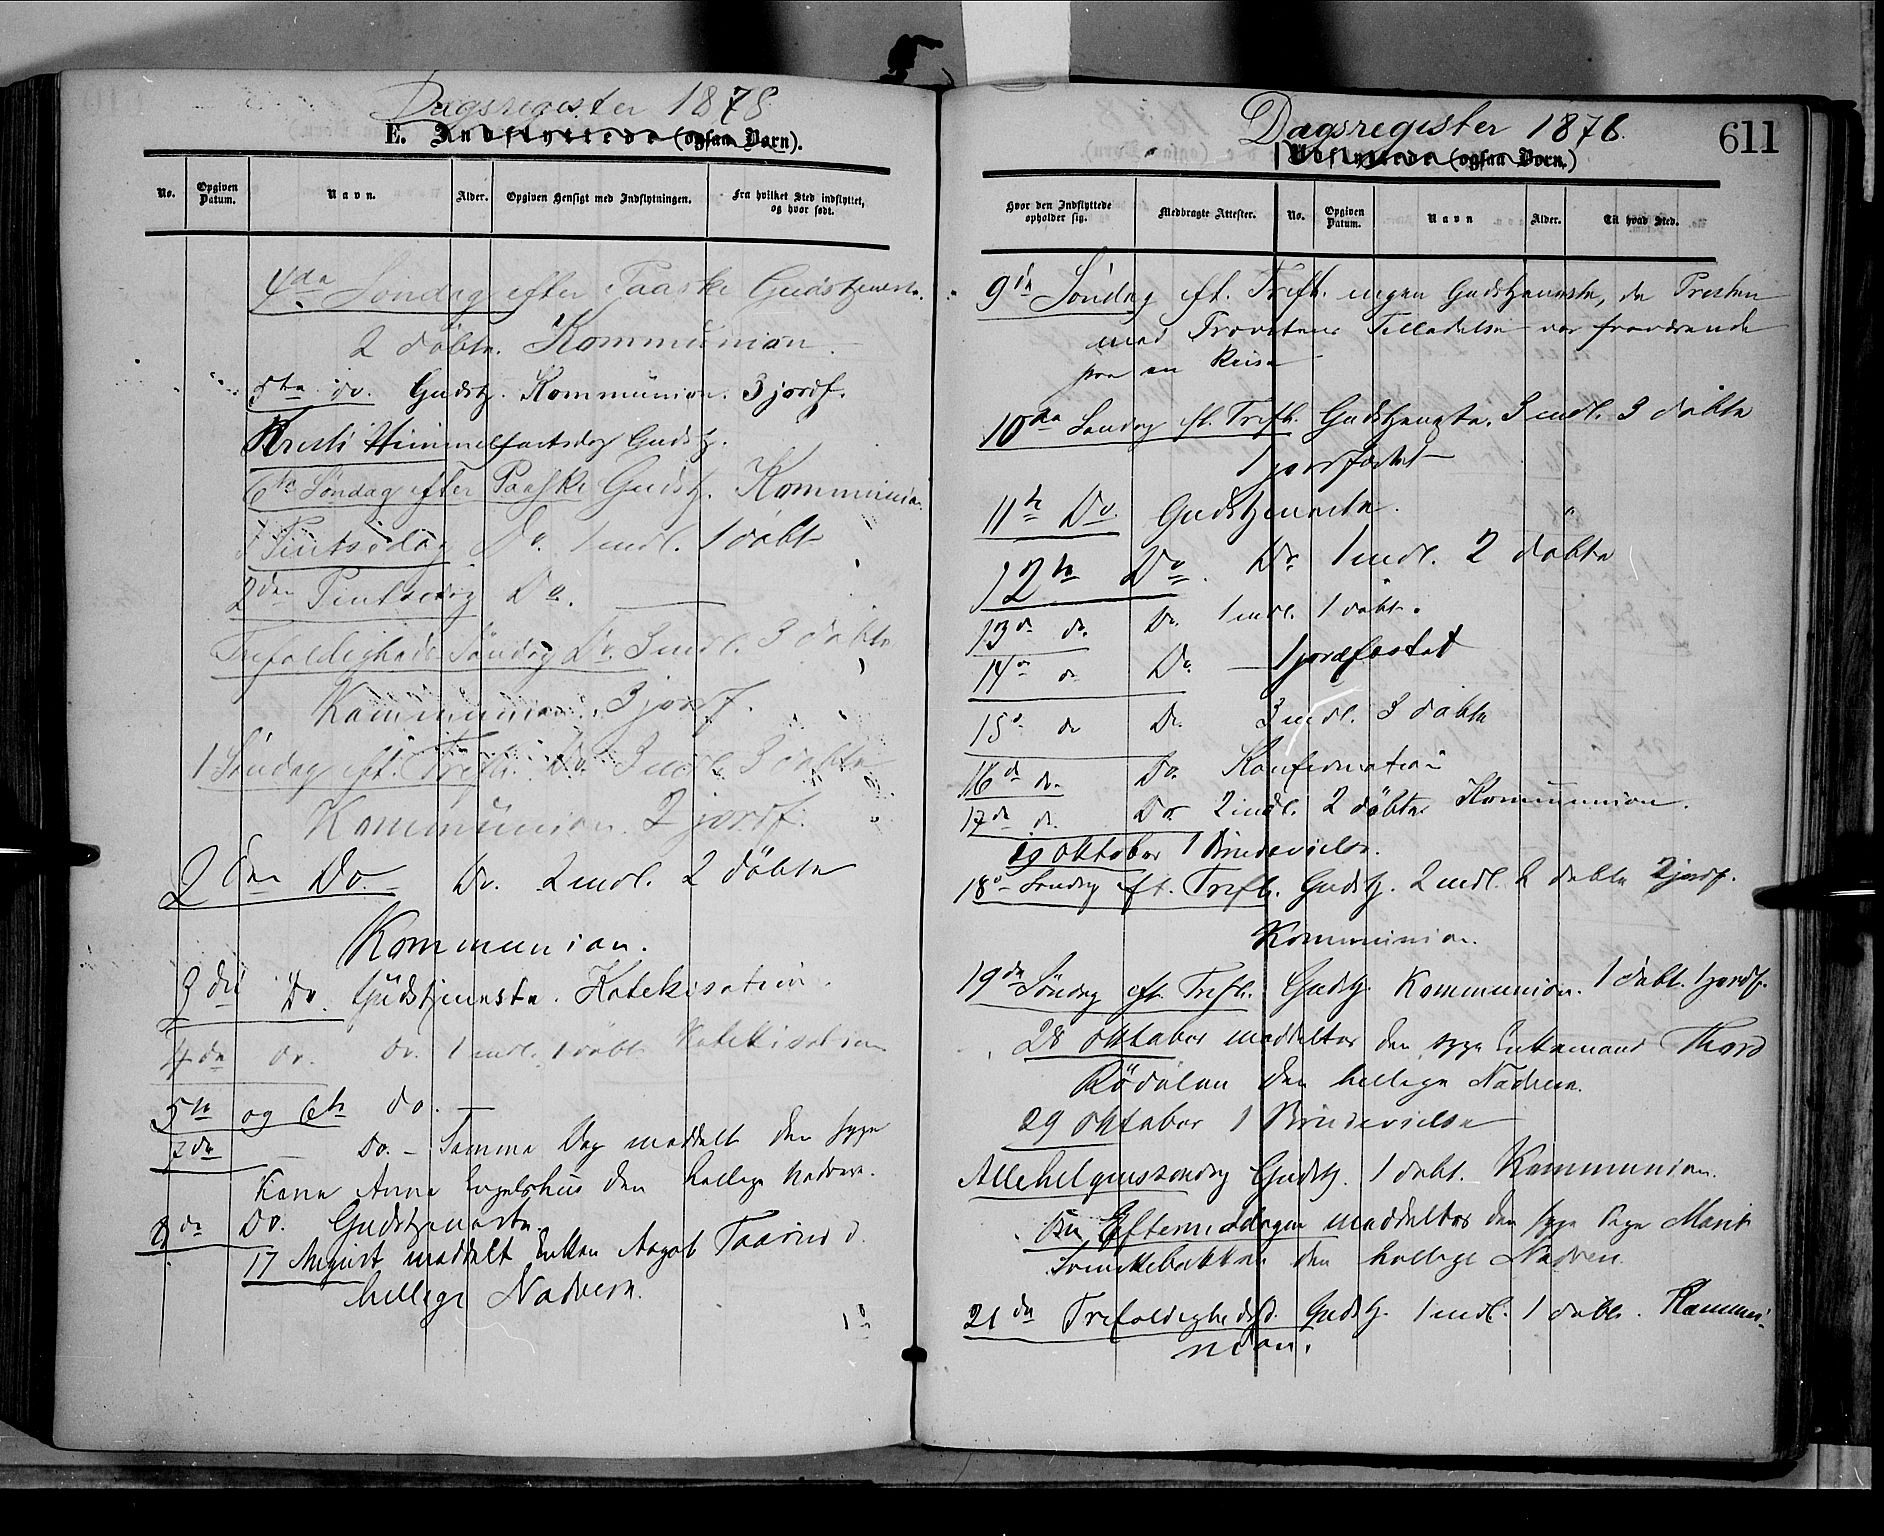 Dagsregister 1878
E. Indflyttede (ogsaa Børn).
No.
Opgiven Datum.
Navn.
Alder.
Opgiven Hensigt med Indflytningen.
Fra hvilket Sted indflyttet, og hvor født.
4de Søndag efter Paaske Gudstjeneste.
2 döbte. Kommunion.
5te do. Gudstj. Kommunion. 3 jordf.
Kristi Himmelfartsdag Gudstj.
6te Søndag efter Paaske Gudstj. Kommunion
Pintsedag Do. 1 indl. 1 döbt
2den Pintsedag Do.
Trefoldigheds Søndag Do. 3 indl. 3 döbte
Kommunion. 3 jordf.
1 Søndag eft. Trefh. Do. 3 indl. 3 döbte
Kommunion. 2 jordf.
2den Do. Do. 2 indl. 2 döbte
Kommunion.
3die Do. Gudstjeneste. Katekisation.
4de do. do. 1 indl. 1 döbt Katekisation
5te og 6te do.
7de Do. – Samme Dag meddelt den syge
Kone Anne Engelshus den hellige Nadvere.
8de Do. Gudstjeneste.
17 August meddelt Enken Aagot d.
hellige Nadvere.
Dagsregister 1878.
611
Udflyttede (ogsaa Børn.)
Hvor den Indflyttede opholder sig.
Medbragte Attester.
No.
Opgiven Datum.
Navn
Alder.
Til hvad Sted.
9de Søndag eft. Trefh. ingen Gudstjeneste, da Presten
med Provstens Tilladelse var fraværende
paa en Reise
10de Søndag eft. Trefh. Gudstjeneste. 3 indl. 3 döbte
1 jordfæstet
11te Do. Gudstjeneste.
12te Do. Do. 1 indl. 2 döbte
13de do. Do. 1 indl. 1 döbt.
14de do Do. 1 jordfæstet
15de do Do. 3 indl. 3 döbte
16de do. Do. Konfirmation
17de do. Do. 2 indl. 2 döbte. Kommunion.
Oktober 1 Brudevielse.
18de Søndag eft. Trefh. Gudstj. 2 indl. 2 döbte 2 jordf.
Kommunion.
19de Søndag eft. Trefh. Gudstj. Kommunion. 1 döbt. 1 jordf.
28 Oktober meddeltes den syge Enkemand Thord
Rödölen den hellige Nadvere.
29 Oktober 1 Brudevielse
Allehelgenssøndag Gudstj. 1 döbt. Kommunion.
Om Eftermiddagen meddeltes den syge Pige Marit
den hellige Nadvere.
21de Trefoldighedsd. Gudstj. 1 indl. 1 döbt. Kommu-
nion.